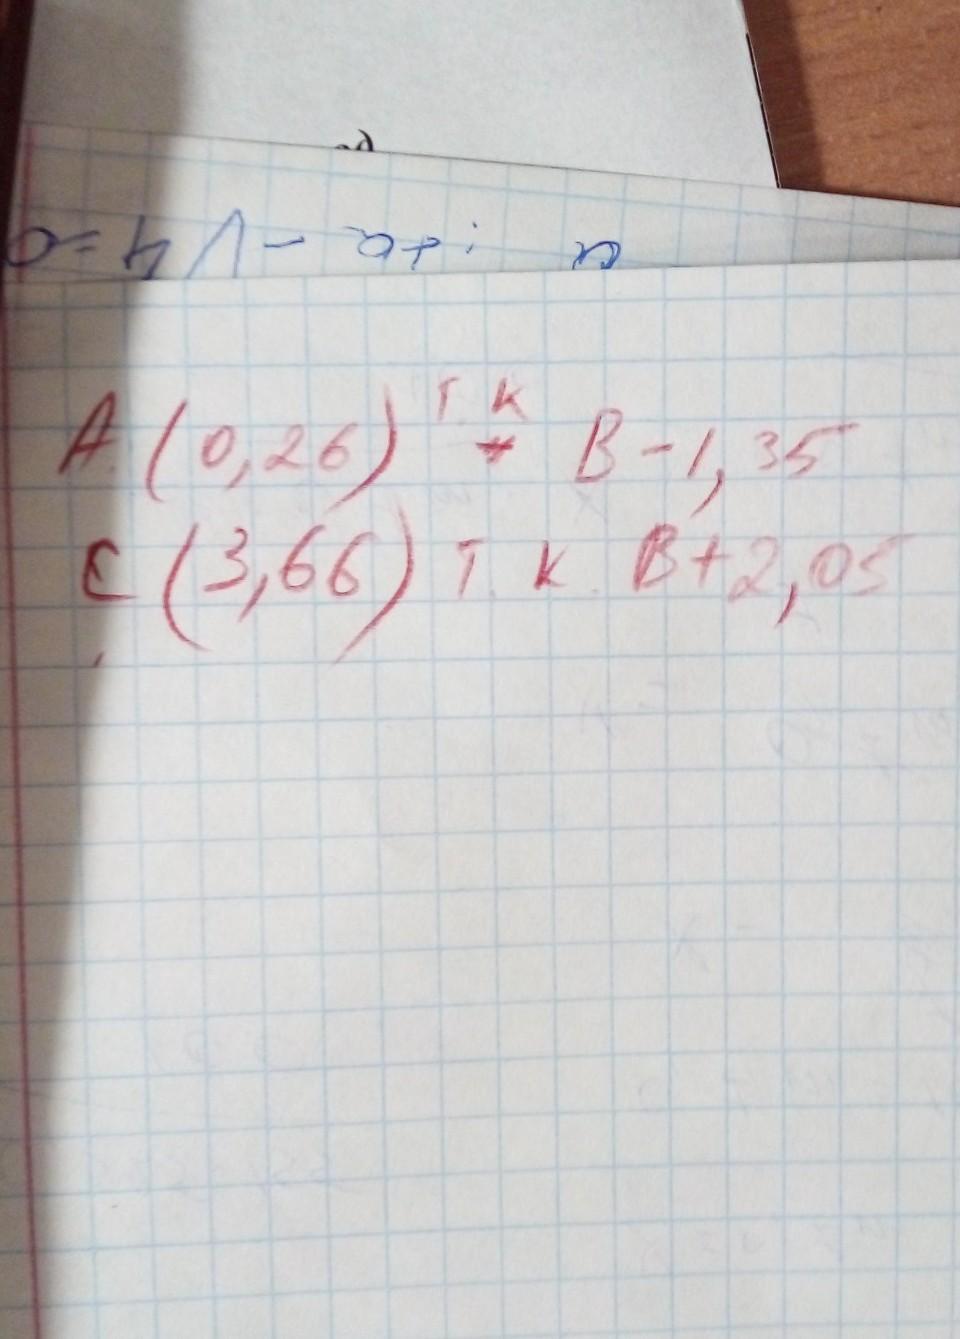 A. (0,26) т.к B-1,35
C (3,66) т.к. B+2,05